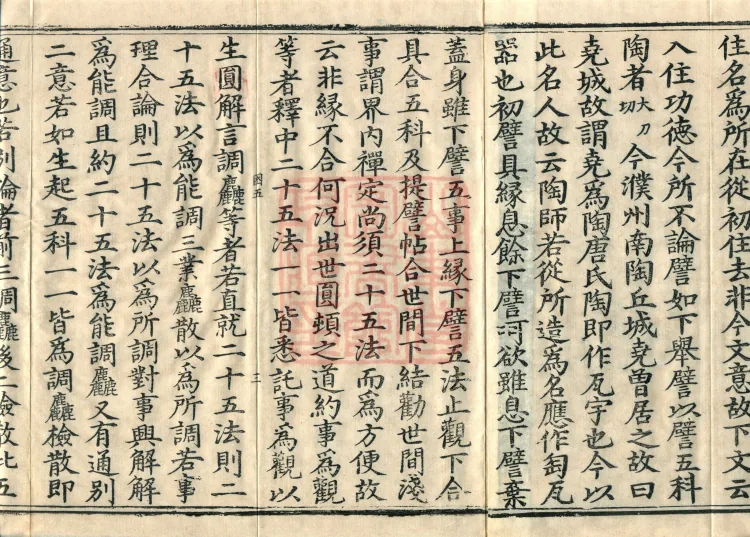 住名為所在從初住去非今文意故下文云
入住功德今所不論譬如下舉譬以譬五科
陶者大刀切今濮州南陶丘城堯曽居之故曰
堯城故謂堯為陶唐氏陶即作瓦宇也今以
此名人故云陶師若從所造為名應作匋瓦
器也初譬具緣息餘下譬訶欲雖息下譬棄
蓋身雖下譬五事上緣下譬五法止觀下合
具合五科及提譬帖合世間下結勸世間淺
事謂界內禪定尚須二十五法而為方便故
云非緣不合何況出世圓頓之道約事為觀
等者釋中二十五法一一皆悉託事為觀以
囙五
三
生圓解言調麤等者若直就二十五法則二
十五法以為能調三業麤散以為所調若事
理合論則二十五法以為所調對事興解解
為能調且約二十五法為能調麤又有通別
二意若如生起五科一一皆為調麤檢散即
通意也若別論者前三調麤後二檢散此五